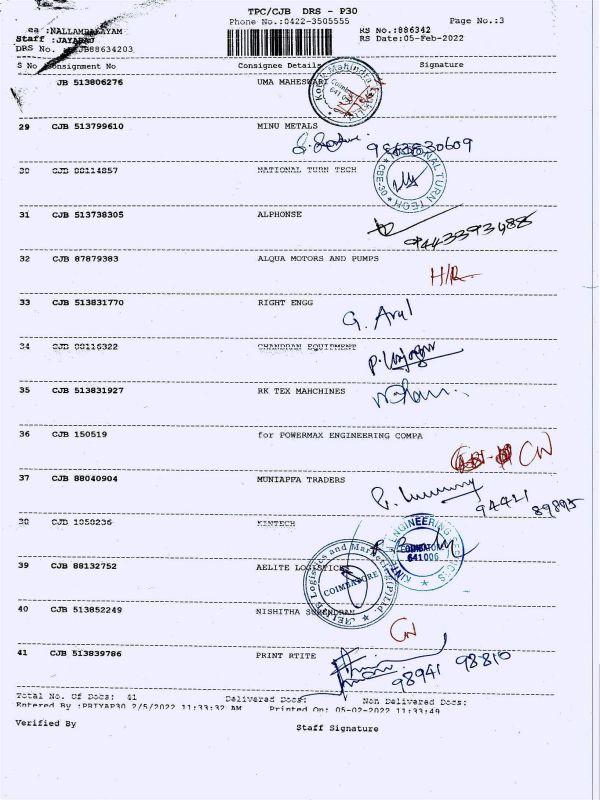 TPC/CJB DRS - P30
Phone No.:0422-3505555 Page No.:3
ea :NALLAMPALAYAM RS No.:886342
Staff :JAYARAJ RS Date:05-Feb-2022
DRS No. CJB88634203
S No Consignment No Consignee Details Signature
JB 513806276 UMA MAHESWARI
Kotak Mahindra
29 CJB 513799610 MINU METALS
9843830609
30 CJB 00114857 NATIONAL TURN TECH
NATIONAL TURN TECH
31 CJB 513738305 ALPHONSE
9443393488
32 CJB 87879383 ALQUA MOTORS AND PUMPS
H/R
33 CJB 513831770 RIGHT ENGG
G. Arul
34 CJB 00116322 CHANDRAN EQUIPMENT
35 CJB 513831927 RK TEX MAHCHINES
36 CJB 150519 for POWERMAX ENGINEERING COMPA
CN
37 CJB 88040904 MUNIAPPA TRADERS
94421 89895
38 CJB 1050236 KINTECH
COIMBATORE
641006
39 CJB 88132752 AELITE LOGISTICS
COIMBATORE
40 CJB 513852249 NISHITHA SURENDRAN
CN
41 CJB 513839786 PRINT RTITE
98941 98810
Total No. Of Docs: 41 Delivered Docs: Non Delivered Docs:
Entered By :PRIYAP30 2/5/2022 11:33:32 AM Printed On: 05-02-2022 11:33:49
Verified By Staff Signature